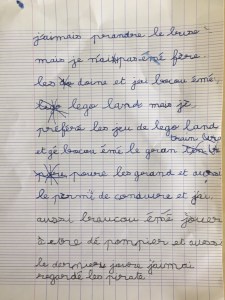 j'aimais prandre le buse
mais je n'ai pas émé fère
les doine et jai bocou émé
lego land mais je
préfére les jeu de lego land
et jé bocou émé le grran
pouvre les grand et aussi
le permit de conduire et j'ai
aussi braucou émé jouer
de pompier et aussi
le dernier joure j'aimai
regardé les pirate